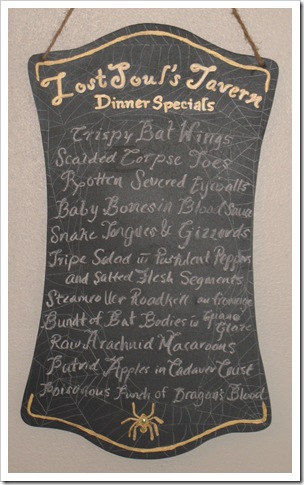 Lost Soul's Tavern
Dinner Specials
Crispy Bat Wings
Scalded Corpse Toes
Rotten Severed Eyeballs
Baby Bones in Blood Sauce
Snake Tongues & Gizzerds
Tripe Salad w Pustulent Peppers
and Salted Flesh Segments
Steamroller Roadkill au
Bundt of Bat Bodies w Guano
Glaze
Raw Arachnid Macaroons
Putrid Apples in Cadaver Crust
Poisonous Punch of Dragon's Blood